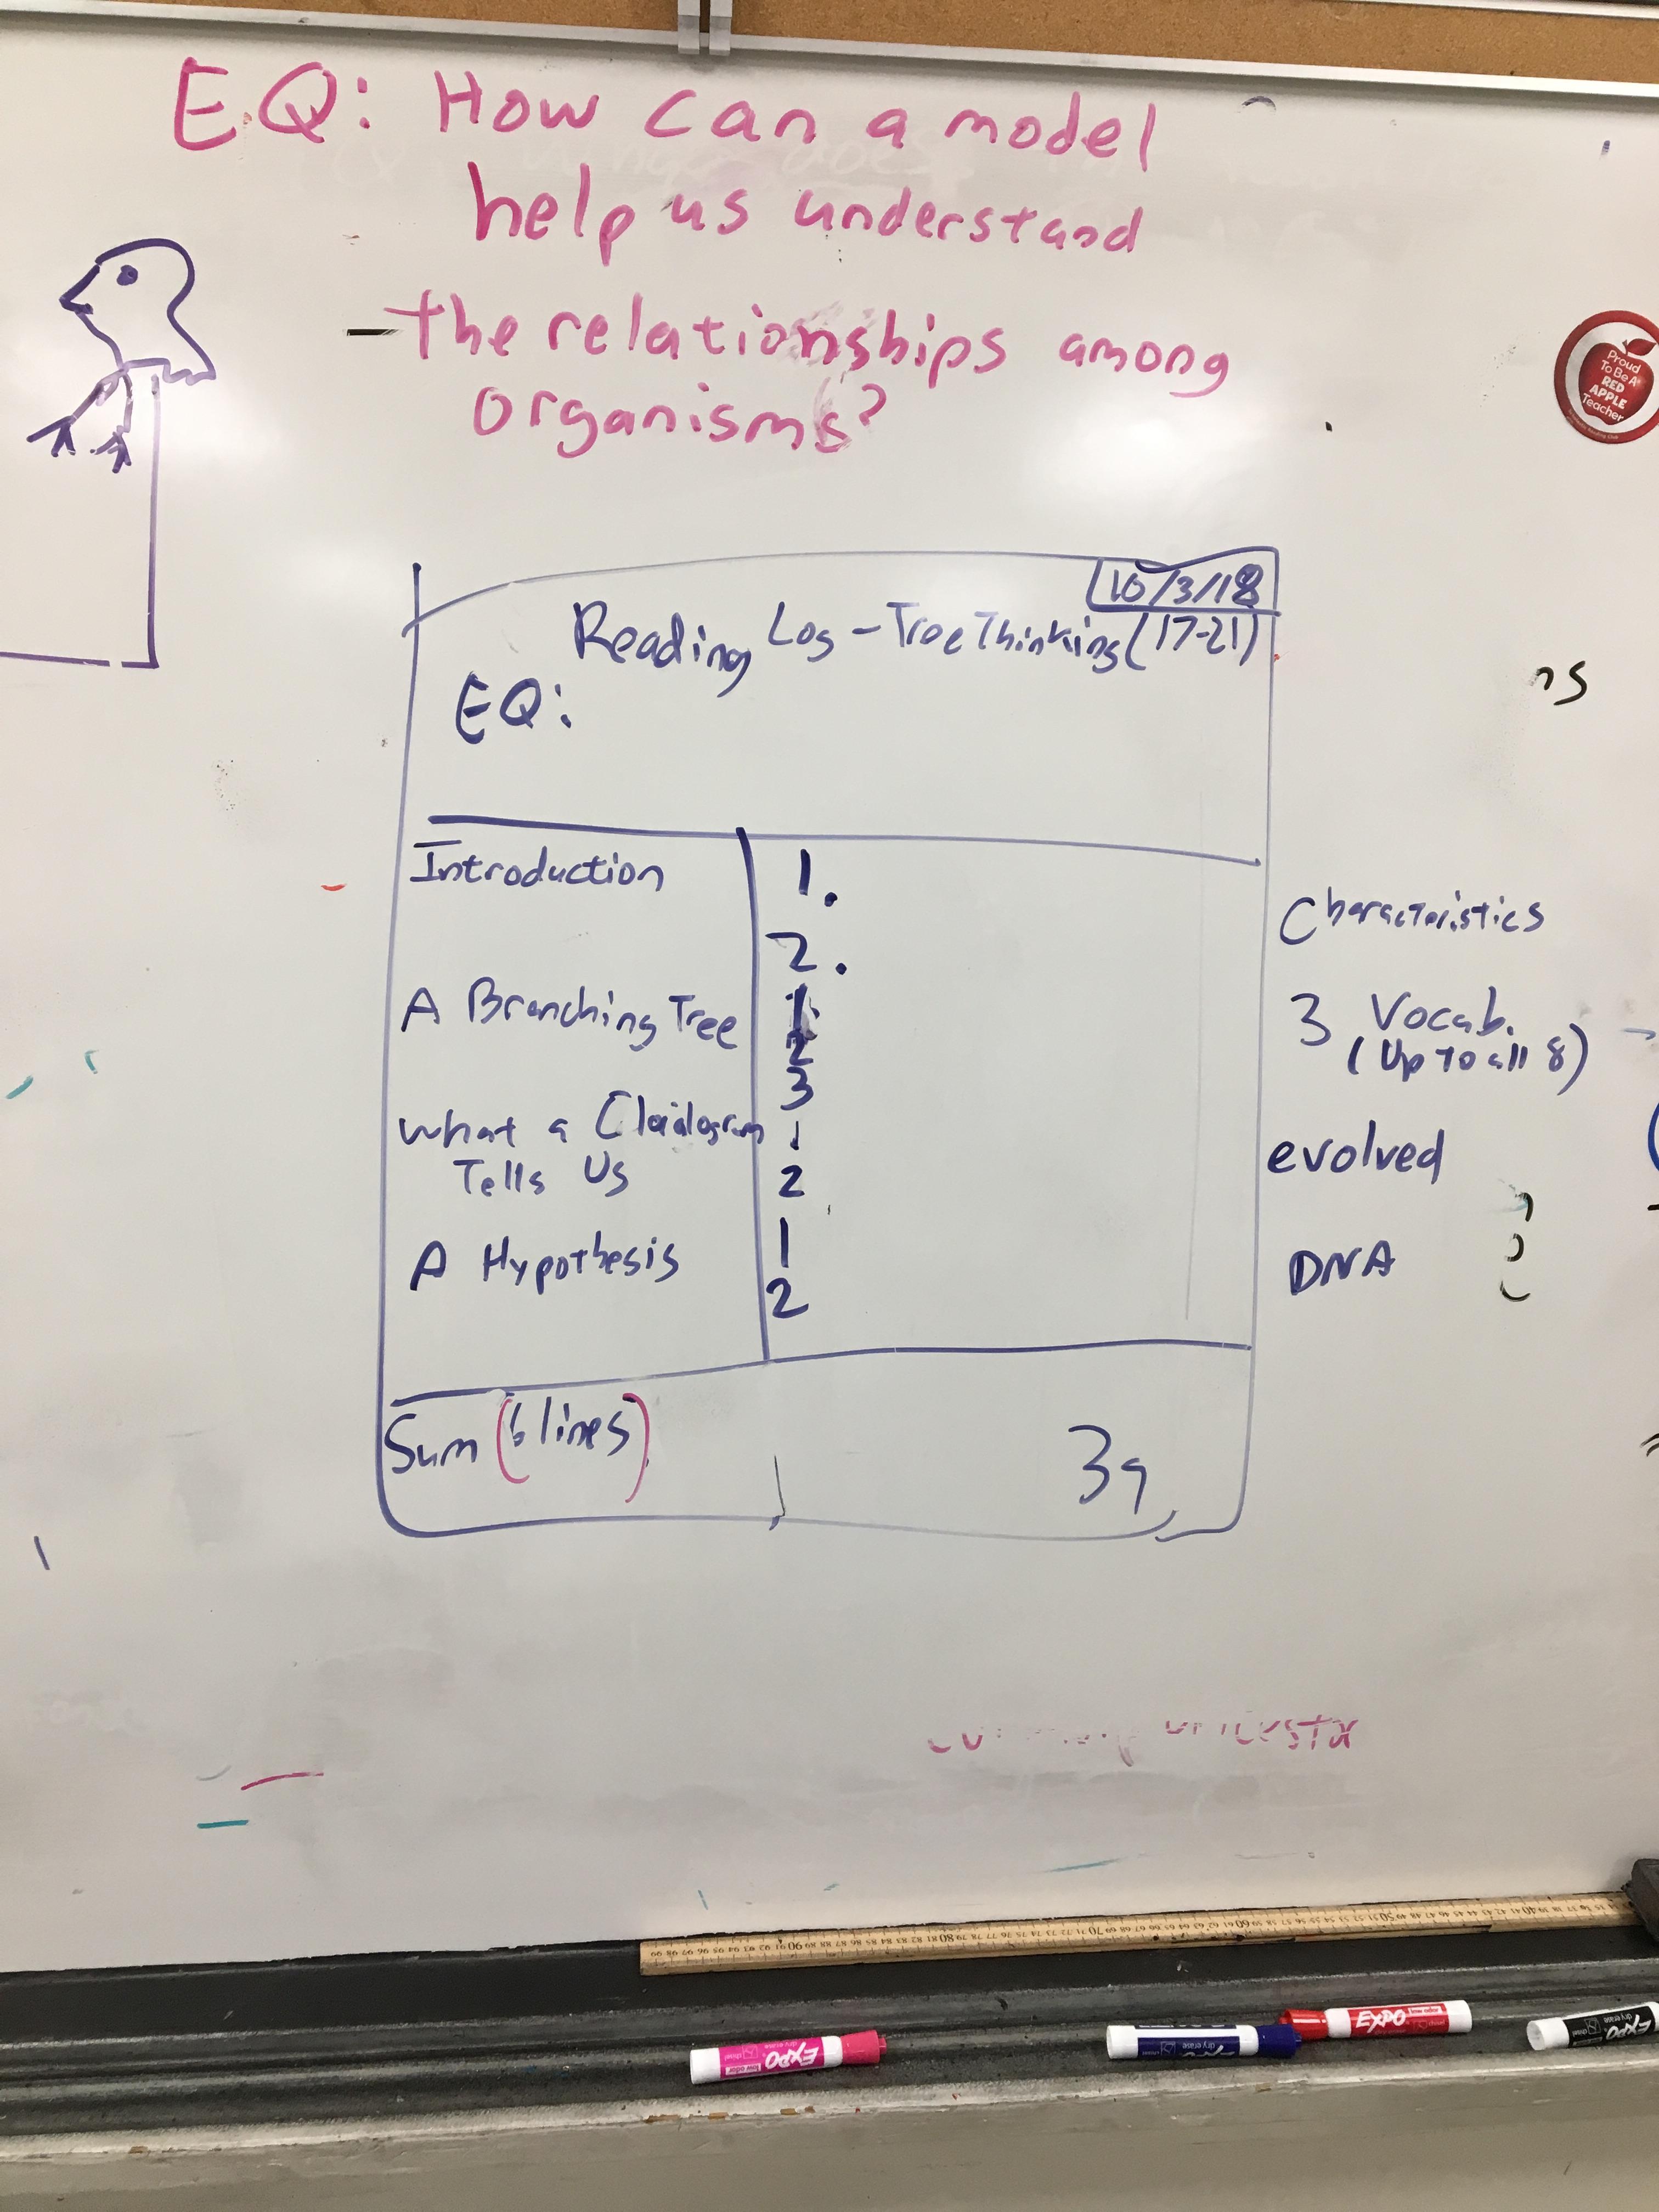 EQ: How can a model
help us understand
the relationships among
organisms?
Proud
To Be A
RED
APPLE
Teacher
10/3/18
Reading Log - Tree Thinking (17-21)
EQ:
Introduction
1.
2.
A Branching Tree
1.
2
3
What a Cladogram
Tells Us
1
2
A Hypothesis
1
2
Sum (6 lines)
39
Characteristics
3 Vocab.
(Up to all 8)
evolved
DNA
ns
EXPO
dry erase
low odor
EXPO
low odor
dry erase
EXPO